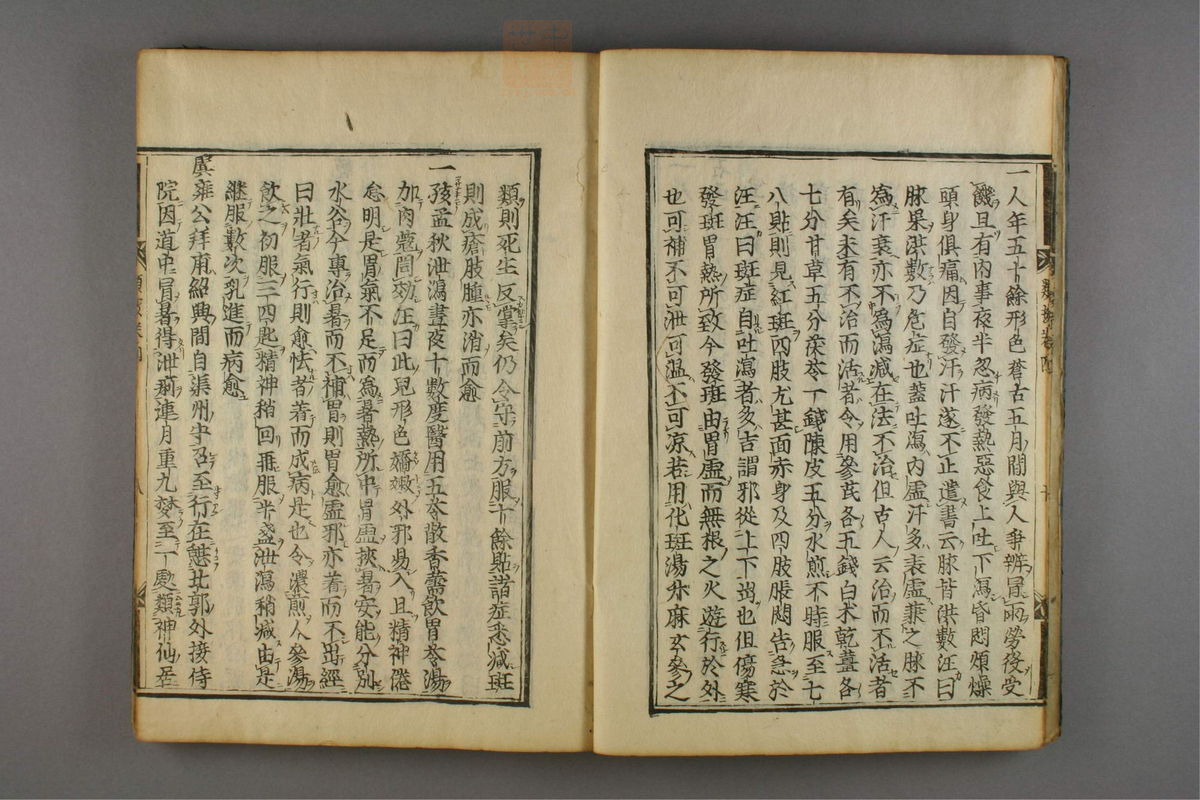 一人年五十餘形色蒼古五月間與人爭辨冒雨勞役受
饑且有内事夜半忽病發熱惡食上吐下瀉昏悶煩燥
頭身俱痛因自發汗汗遂不止遣書云脉皆洪數汪曰
脉果洪數乃危症也蓋吐瀉内虛汗多表虛兼之脉不
為汗衰亦不為瀉減在法不治但古人云治而不活者
有矣未有不治而活者令用參芪各五錢白术乾薑各
七分甘草五分茯苓一錢陳皮五分水煎不時服至七
八貼則見紅斑四肢尤甚面赤身及四肢脹悶告急於
汪汪曰斑症自吐瀉者多吉謂邪從上下出也但傷寒
發斑胃熱所致今發斑由胃虛而無根之火遊行於外
也可補不可泄可温不可凉若用化斑湯升麻玄參之
類則死生反掌矣仍令守前方服十餘貼諸症悉減斑
則成瘡肢腫亦消而愈
一孩孟秋泄瀉晝夜十數度醫用五苓散香薷飲胃苓湯
加肉蔻罔効汪曰此兒形色嬌嫩外邪易入且精神倦
怠明是胃氣不足而為暑熱所中胃虛挾暑安能分別
水谷今專治暑而不補胃則胃愈虛邪亦著而不出經
曰壯者氣行則愈怯者著而成病是也令濃煎人參湯
飲之初服三四匙精神稍回再服半盞泄瀉稍減由是
繼服數次乳進而病愈
虞雍公拜甫紹興間自渠州守召至行在憩北郭外接侍
院因道中冒暑得泄痢連月重九夢至一處類神仙居